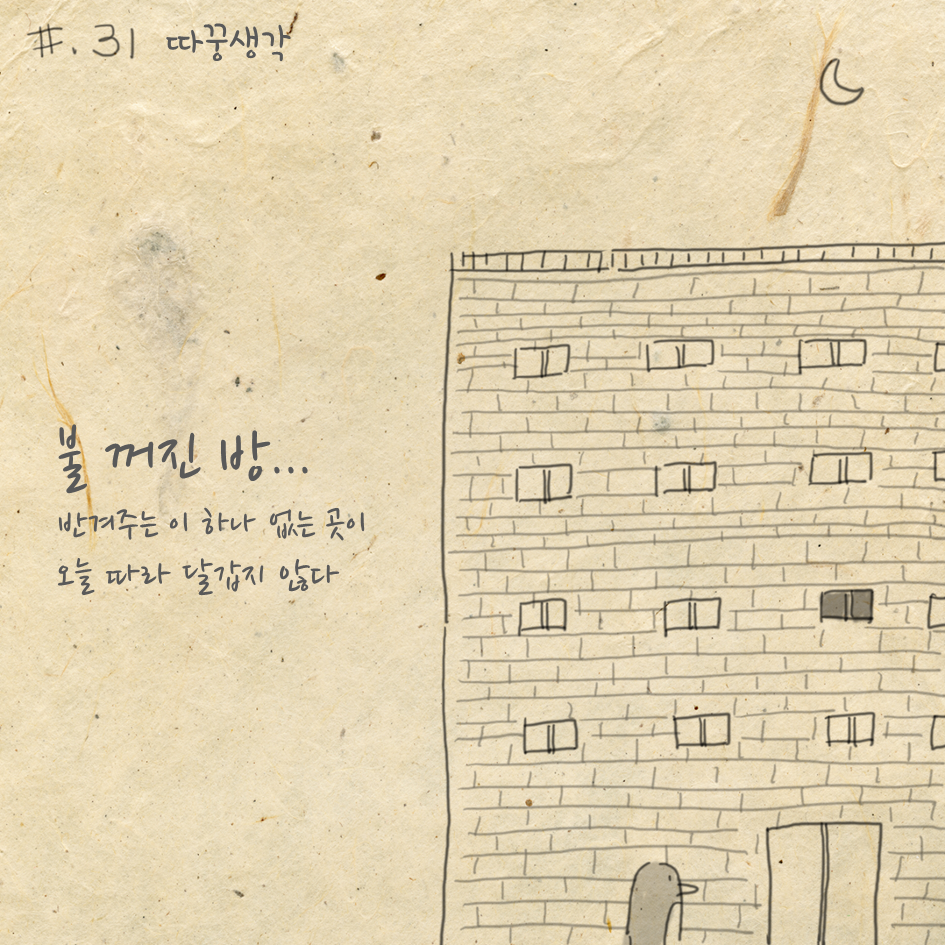 #. 31 따꿍생각
불 꺼진 방...
반겨주는 이 하나 없는 곳이
오늘 따라 달갑지 않다